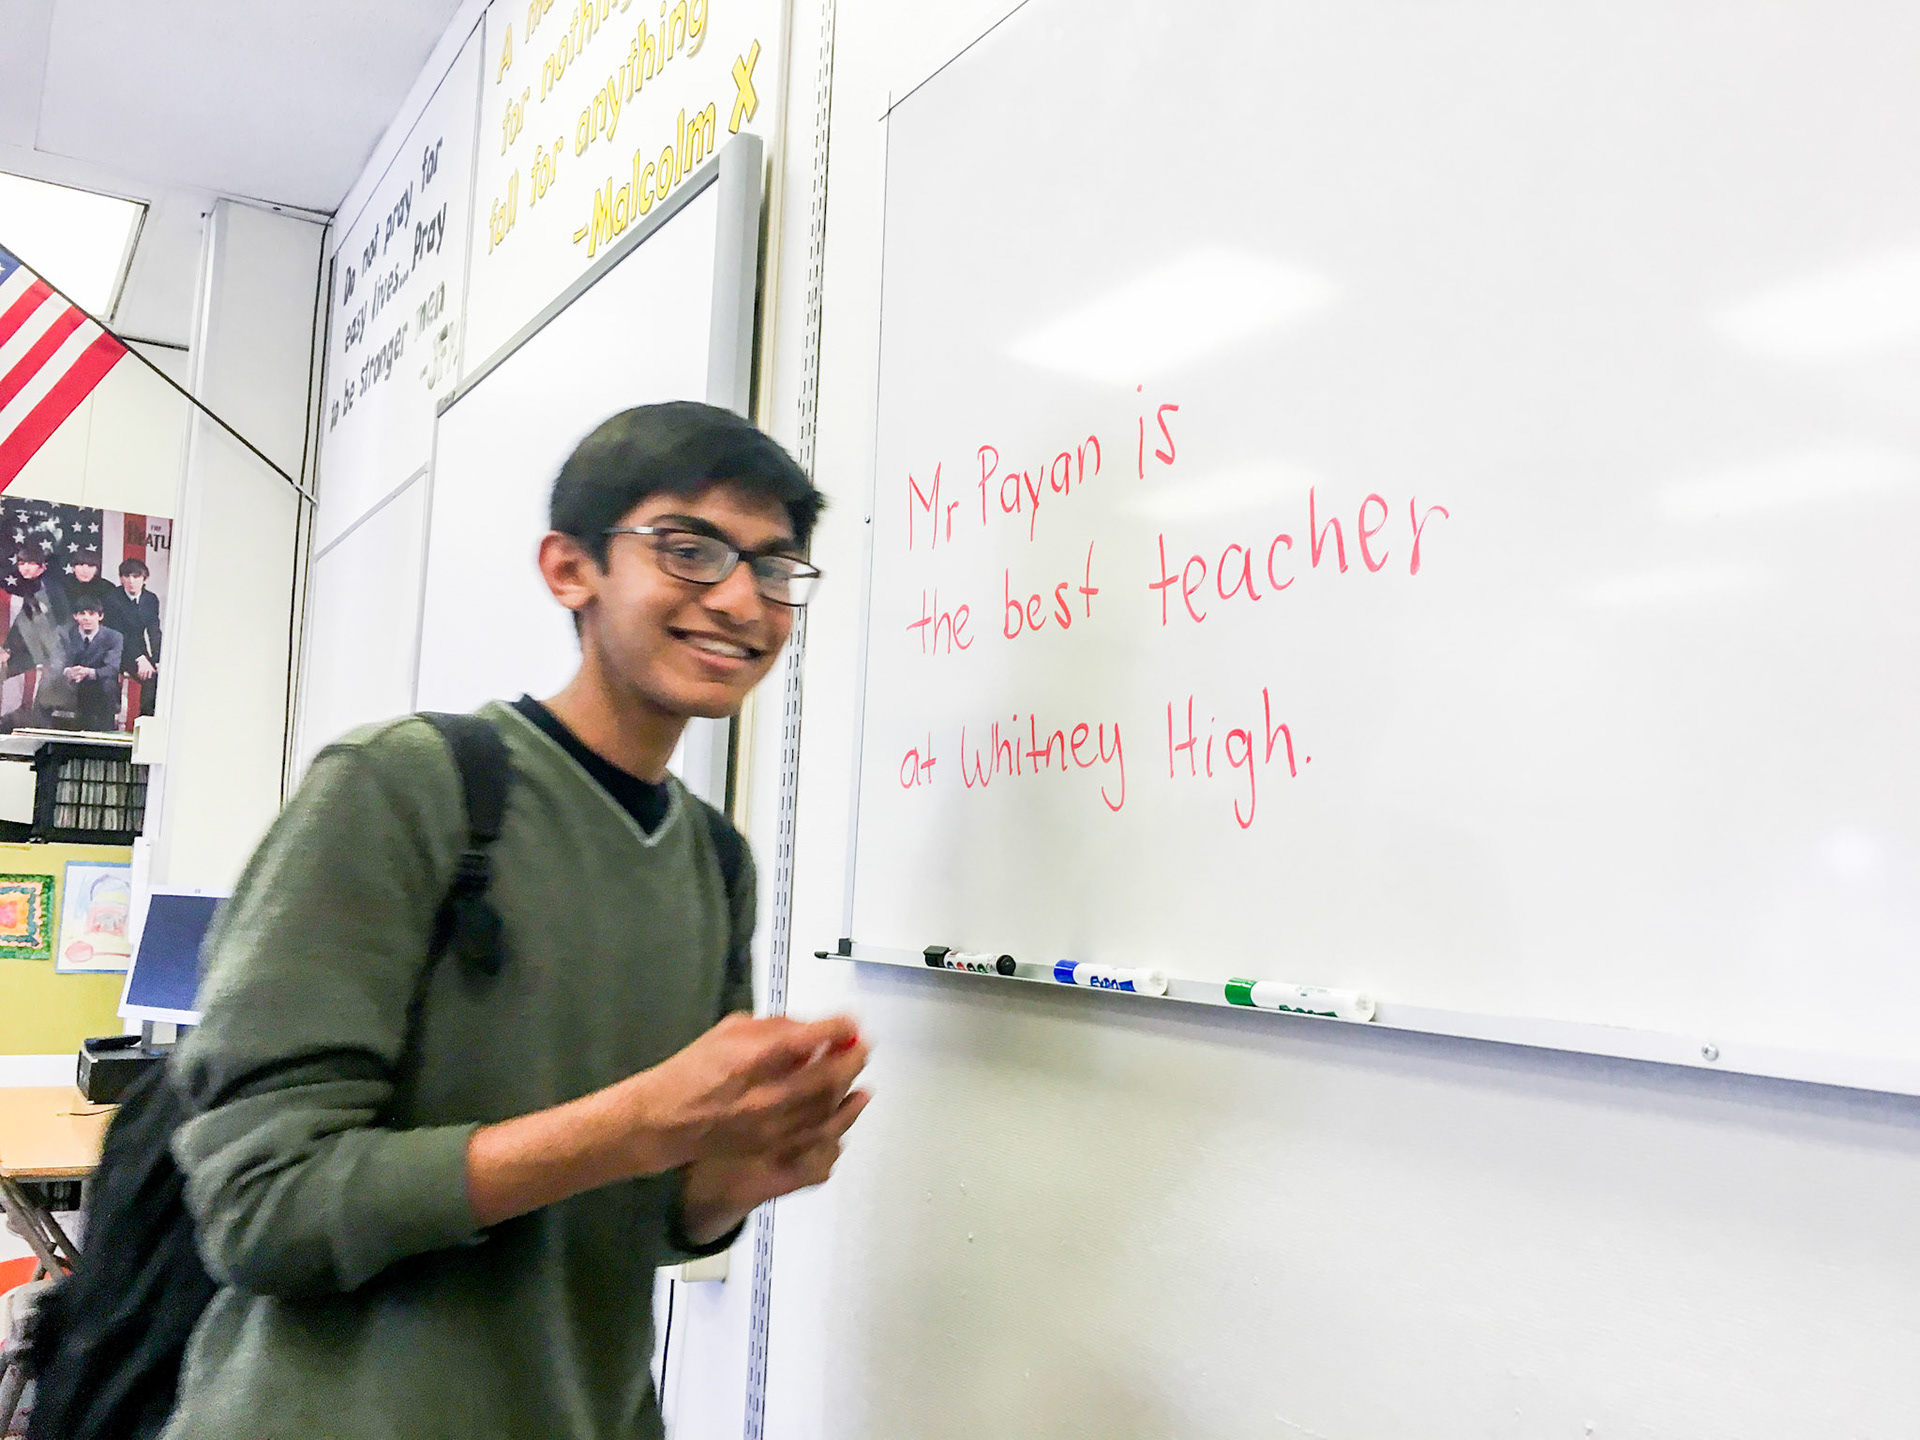 A
for nothing
fall for anything
-Malcolm X
Do not pray for
easy lives... Pray
to be stronger men
-JFK
THE
BEATL
Mr Payan is
the best teacher
at Whitney High.
EXPO